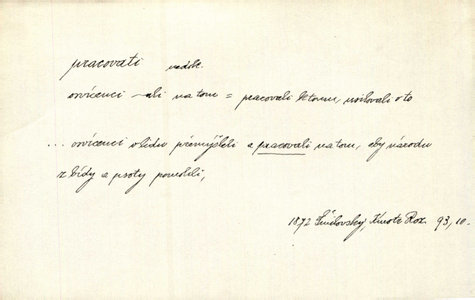 pracovati nedk.
osvícenci -ali na tom = pracovali k tomu, usilovali o to
... osvícenci v lidu přemýšleli a pracovali na tom, aby národu
z bídy a psoty pomohli,
1872 Šmilovský, 93, 10.